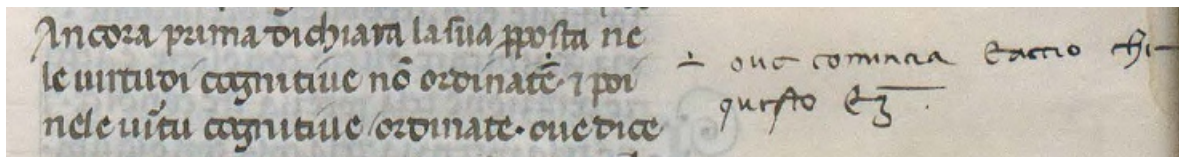 Ancora prima dichiara la sua ꝓposta ne
le uirtudi cognitiue nō ordinate · ⁊ poi
nele uirtu cognitiue ordinate · oue dice
÷ oue comincia Eaccio chi
questo